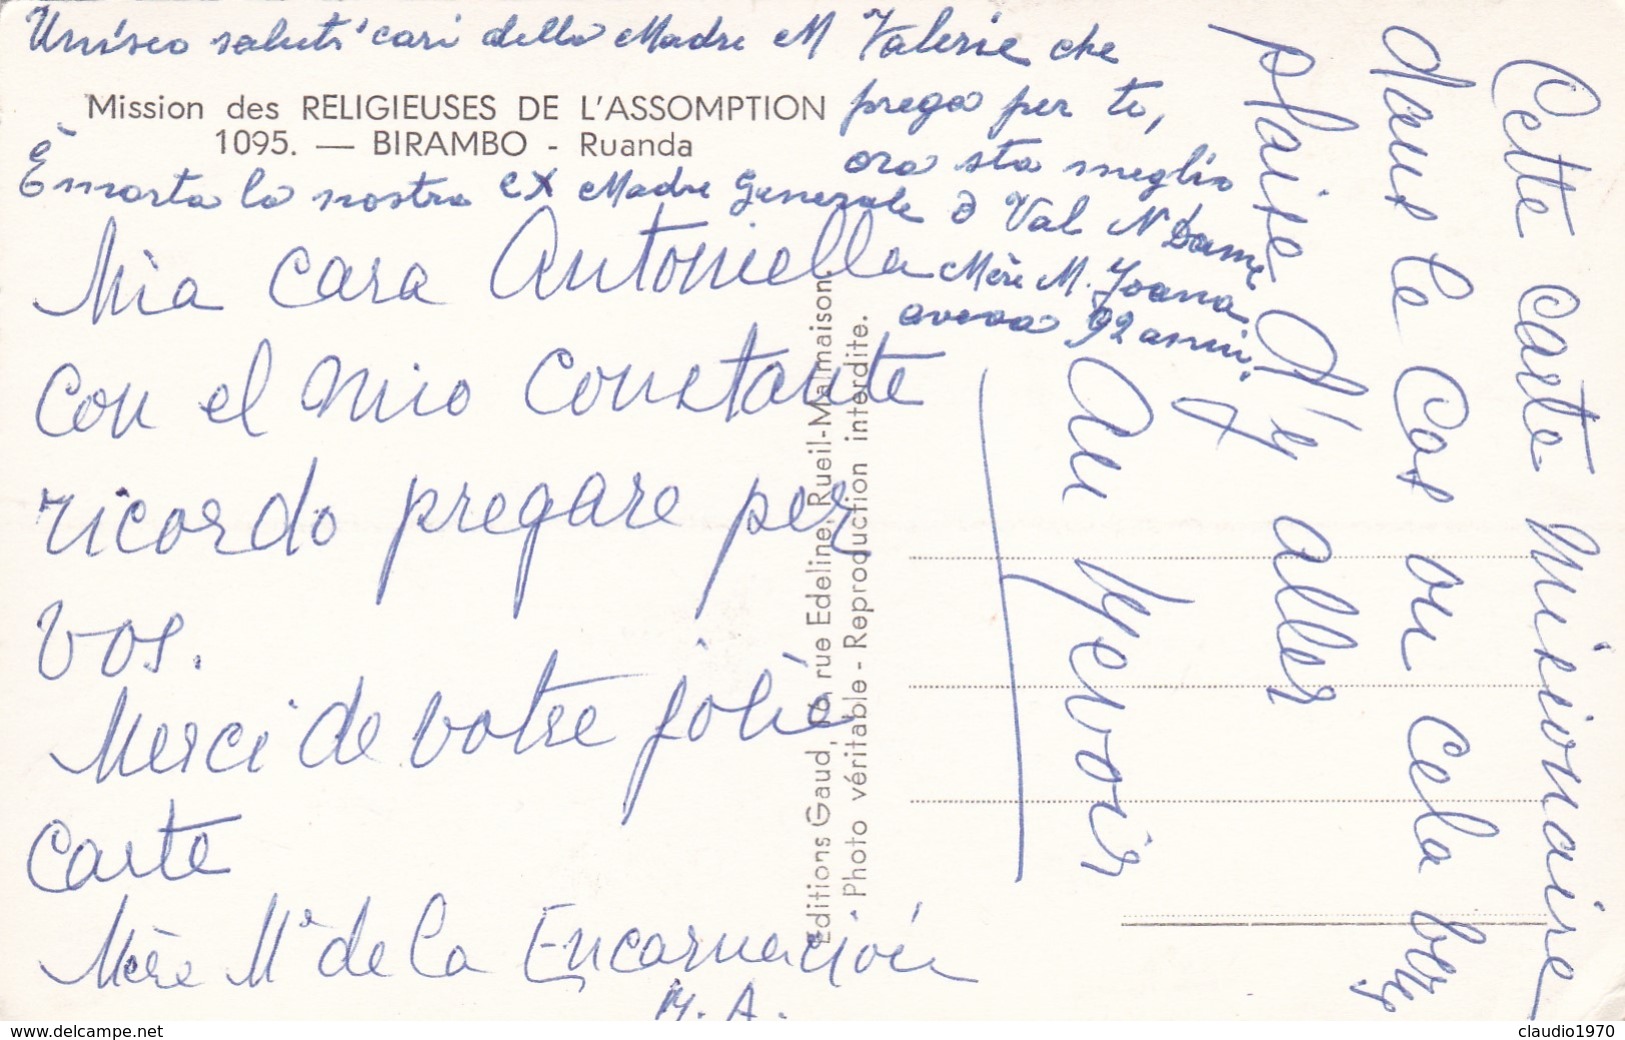 Unisco saluti cari della Madre M Valerie che
prega per te,
ora sta meglio
Mission des RELIGIEUSES DE L'ASSOMPTION
1095. — BIRAMBO - Ruanda
È morta la nostra ex Madre Generale a Val N Dame
Mère M. Joanna
aveva 92 anni.
Mia cara Antoniella
con el mio constante
ricordo pregare per
vos.
Merci de votre jolie
carte
Mère Mª de la Encarnación
M. A.
Editions Gaud, rue Edeline, Rueil-Malmaison.
Photo véritable - Reproduction interdite.
Cette carte Misionaire
dans le cas ou cela
plaise d'y aller
Au revoir
www.delcampe.net
claudio1970